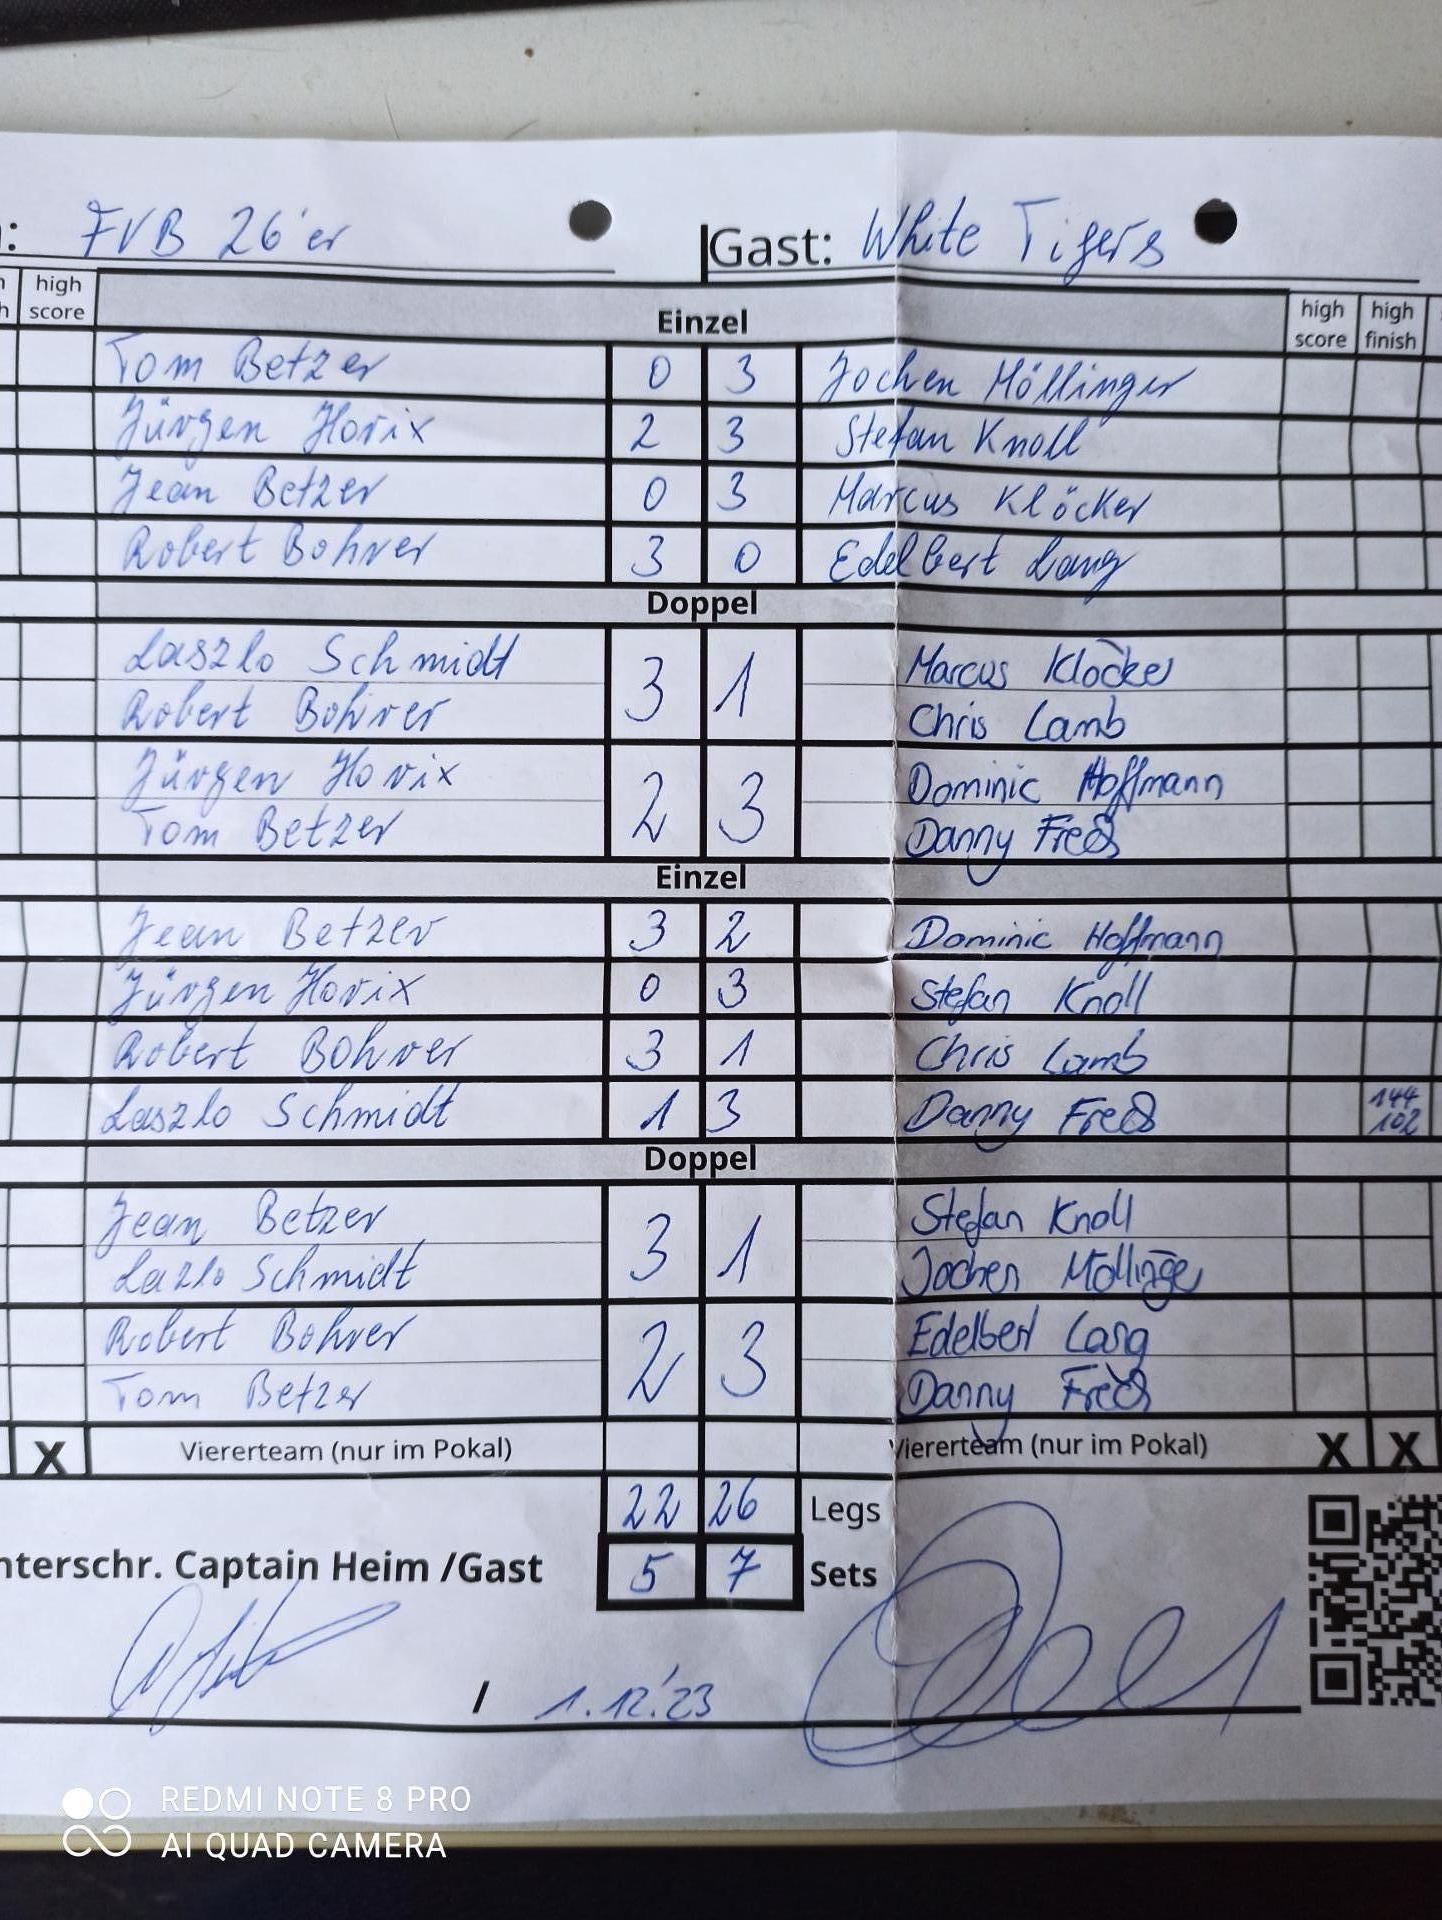 : FVB 26'er Gast: White Tigers
high score Einzel high score high finish
Tom Betzer 0 3 Jochen Möllinger
Jürgen Horix 2 3 Stefan Knoll
Jean Betzer 0 3 Marcus Klöcker
Robert Bohrer 3 0 Edelbert Lang
Doppel
Laszlo Schmidt 3 1 Marcus Klöcker
Robert Bohrer Chris Lamb
Jürgen Horix 2 3 Dominic Hoffmann
Tom Betzer Danny
Einzel
Jean Betzer 3 2 Dominic Hoffmann
Jürgen Horix 0 3 Stefan Knoll
Robert Bohrer 3 1 Chris Lamb
Laszlo Schmidt 1 3 Danny 144
102
Doppel
Jean Betzer 3 1 Stefan Knoll
Lazlo Schmidt Jochen Möllinger
Robert Bohrer 2 3 Edelbert Lang
Tom Betzer Danny
X Viererteam (nur im Pokal) Viererteam (nur im Pokal) X X
22 26 Legs
nterschr. Captain Heim /Gast 5 7 Sets
/ 1.12.'23
REDMI NOTE 8 PRO
AI QUAD CAMERA